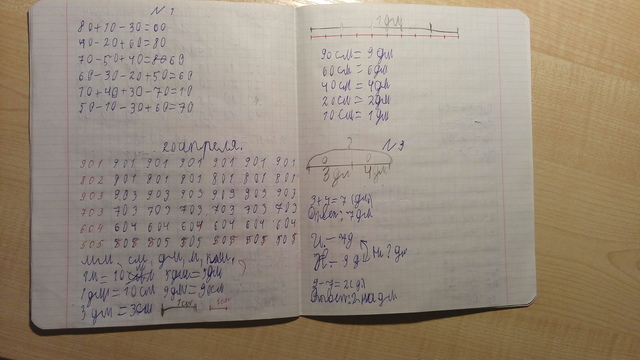 N 1
80+10-30=60
40-20+60=80
70-50+40=60
60-30-20+50=60
10+40+30-70=10
50-10-30+60=70
20 апреля.
901 901 901 901 901 901 901
802 801 801 801 801 801 801
903 903 903 903 903 903 903
703 703 703 703 703 703 703
604 604 604 604 604 604 604
505 505 505 505 505 505 505
мм, см, дм, м,
1дм=10см 9дм=90см
3дм=3см 1см
1дм
90см=9дм
60см=6дм
40см=4дм
20см=2дм
10см=1дм
N 3
?
3 дм 4 дм
3+4=7 (дм)
Ответ: 7дм
И.-7д
Н.-9д На ? дм
9-7=2
Ответ: 2 на дм